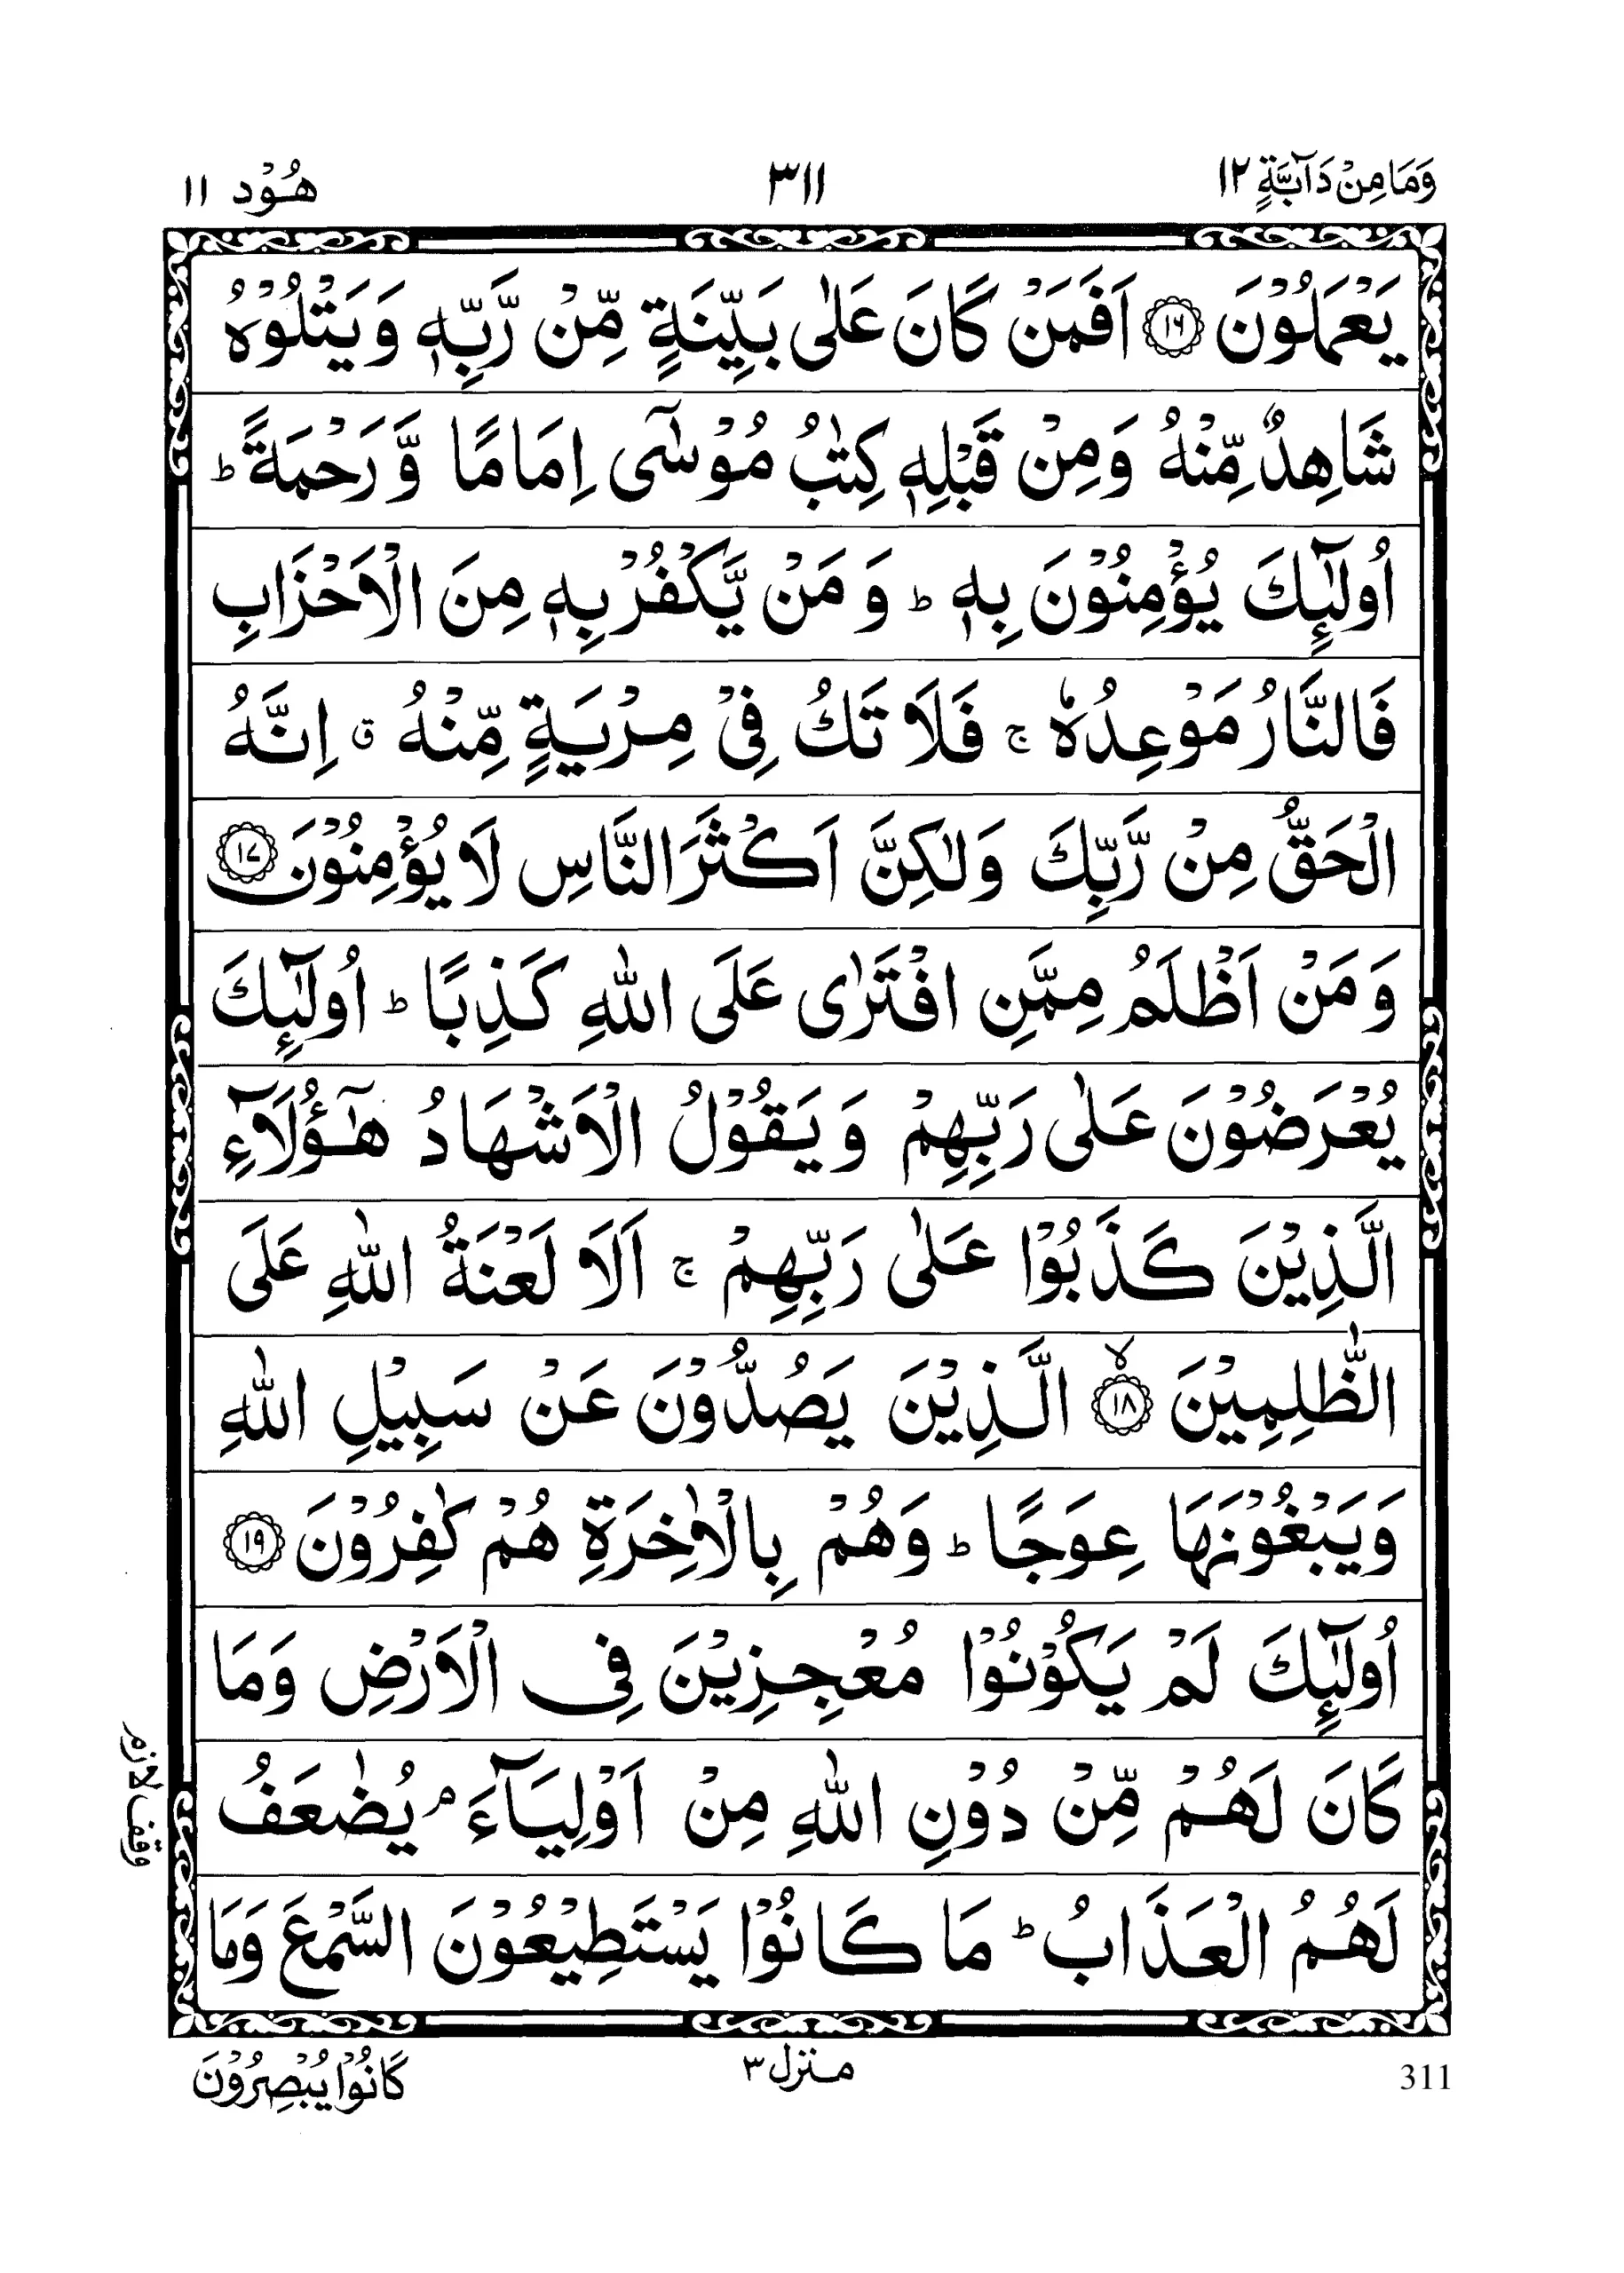 وَمَا مِنْ دَآبَّةٍ ١٢
٣١١
هُوْد ١١
يَعْمَلُوْنَ ﴿١٦﴾ اَفَمَنْ كَانَ عَلٰى بَيِّنَةٍ مِّنْ رَّبِّهٖ وَيَتْلُوْهُ
شَاهِدٌ مِّنْهُ وَمِنْ قَبْلِهٖ كِتٰبُ مُوْسٰٓى اِمَامًا وَّرَحْمَةً ؕ
اُولٰٓئِكَ يُؤْمِنُوْنَ بِهٖ ؕ وَمَنْ يَّكْفُرْ بِهٖ مِنَ الْاَحْزَابِ
فَالنَّارُ مَوْعِدُهٗ ۚ فَلَا تَكُ فِىْ مِرْيَةٍ مِّنْهُ ۗ اِنَّهُ
الْحَقُّ مِنْ رَّبِّكَ وَلٰكِنَّ اَكْثَرَ النَّاسِ لَا يُؤْمِنُوْنَ ﴿١٧﴾
وَمَنْ اَظْلَمُ مِمَّنِ افْتَرٰى عَلَى اللّٰهِ كَذِبًا ؕ اُولٰٓئِكَ
يُعْرَضُوْنَ عَلٰى رَبِّهِمْ وَيَقُوْلُ الْاَشْهَادُ هٰٓؤُلَآءِ
الَّذِيْنَ كَذَبُوْا عَلٰى رَبِّهِمْ ۚ اَلَا لَعْنَةُ اللّٰهِ عَلَى
الظّٰلِمِيْنَ ۙ﴿١٨﴾ الَّذِيْنَ يَصُدُّوْنَ عَنْ سَبِيْلِ اللّٰهِ
وَيَبْغُوْنَهَا عِوَجًا ؕ وَهُمْ بِالْاٰخِرَةِ هُمْ كٰفِرُوْنَ ﴿١٩﴾
اُولٰٓئِكَ لَمْ يَكُوْنُوْا مُعْجِزِيْنَ فِى الْاَرْضِ وَمَا
كَانَ لَهُمْ مِّنْ دُوْنِ اللّٰهِ مِنْ اَوْلِيَآءَ ۘ يُضٰعَفُ
وقف لازم
لَهُمُ الْعَذَابُ ؕ مَا كَانُوْا يَسْتَطِيْعُوْنَ السَّمْعَ وَمَا
311
منزل ٣
كَانُوْا يُبْصِرُوْنَ